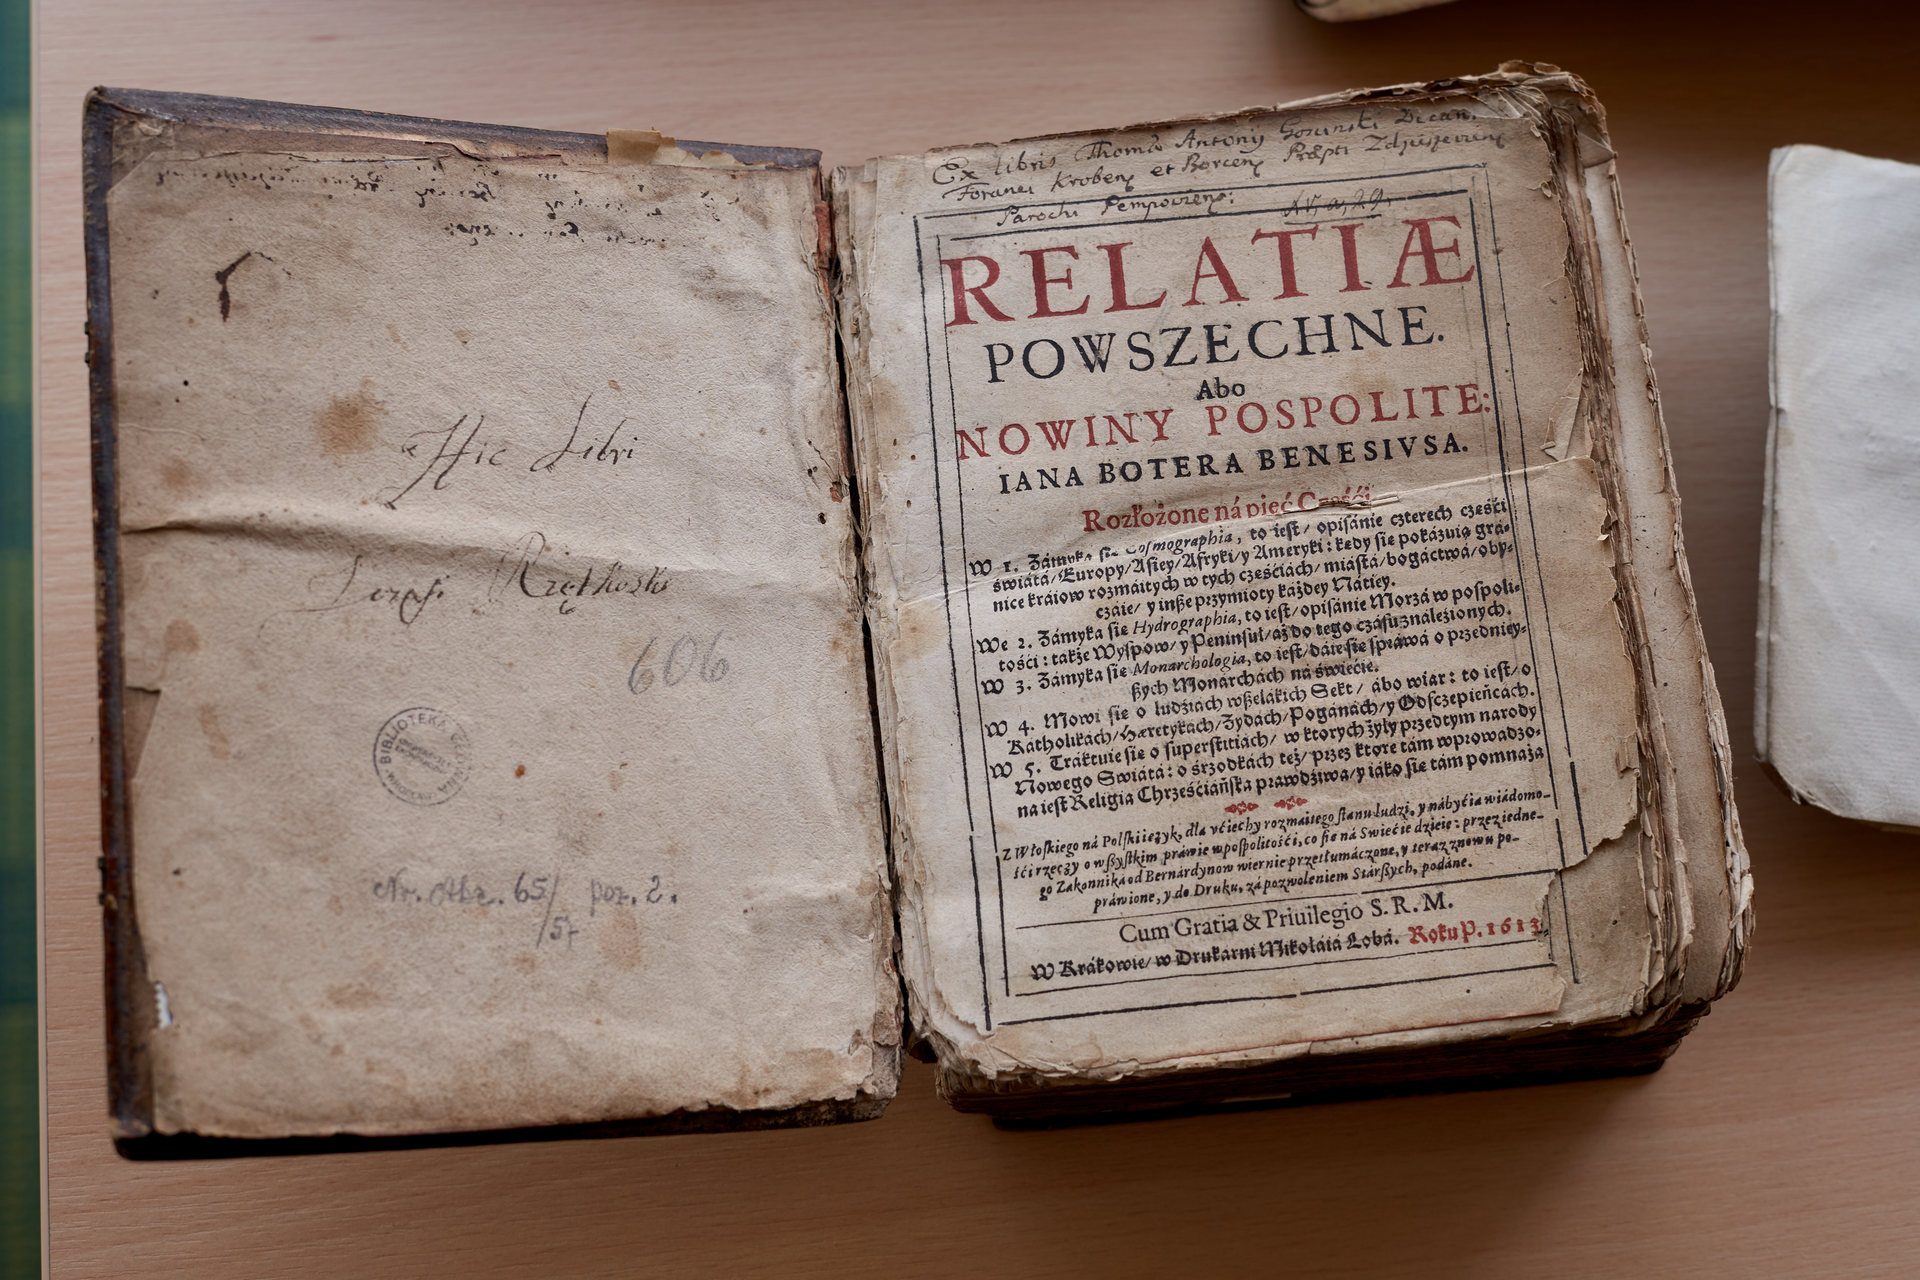 Hic Libri
606
BIBLIOTEKA
Nr. Akc. 65/ poz. 2.
/57
Ex libris Thomæ Antonij Gosinski Decan.
Foranei Kroben et Borcen
Parochi Pempovien:
RELATIÆ
POWSZECHNE.
Abo
NOWINY POSPOLITE:
IANA BOTERA BENESIVSA.
Rozłożone ná pięć Części
W 1. Zámyka się Cosmographia, to iest/ opisánie czterech części
świátá/ Europy/ Asiey/ Afryki/ y Ameryki: kędy się pokázuią grá-
nice kráiow rozmáitych w tych częściách/ miástá/ bogáctwá/ oby-
czáie/ y inße przymioty káżdey Nátiey.
We 2. Zámyka się Hydrographia, to iest/ opisánie Morzá w pospoli-
tości: tákże Wyspow/ y Peninsul/ áż do tego czásu ználezionych.
W 3. Zámyka się Monarchologia, to iest/ dáie się spráwá o przedniey-
ßych Monárchách ná świecie.
W 4. Mowi się o ludziách wßelákich Sekt/ ábo wiar: to iest/ o
Kátholikách/ Hæretykách/ Żydách/ Pogánách/ y Odsczepieńcách.
W 5. Tráktuie się o superstitiách/ w ktorych żyły przedtym narody
Nowego Swiátá: o śrzodkách też/ przez ktore tám wprowádzo-
na iest Religia Chrześciáńska prawdźiwa/ y iáko się tám pomnaża
Z Włoskiego ná Polski ięzyk, dla vćiechy rozmaitego stanu ludzi, y nábyćia wiádomo-
śći rzeczy o wßystkim práwie w pospolitośći, co się ná Swiećie dzieie: przez iedne-
go Zakonniká od Bernárdynow wiernie przetłumáczone, y teraz znowu po-
práwione, y do Druku, zá pozwoleniem Stárßych, podáne.
Cum Gratia & Priuilegio S. R. M.
W Krákowie/ w Drukárni Mikołáiá Lobá. Roku P. 1613.